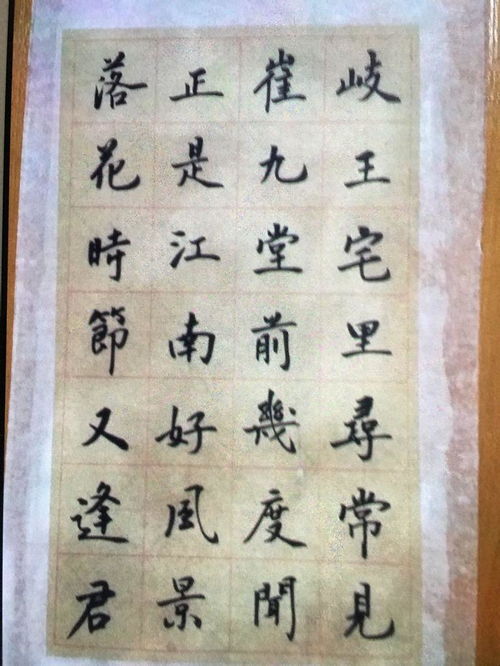 岐王宅里尋常見
崔九堂前幾度聞
正是江南好風景
落花時節又逢君